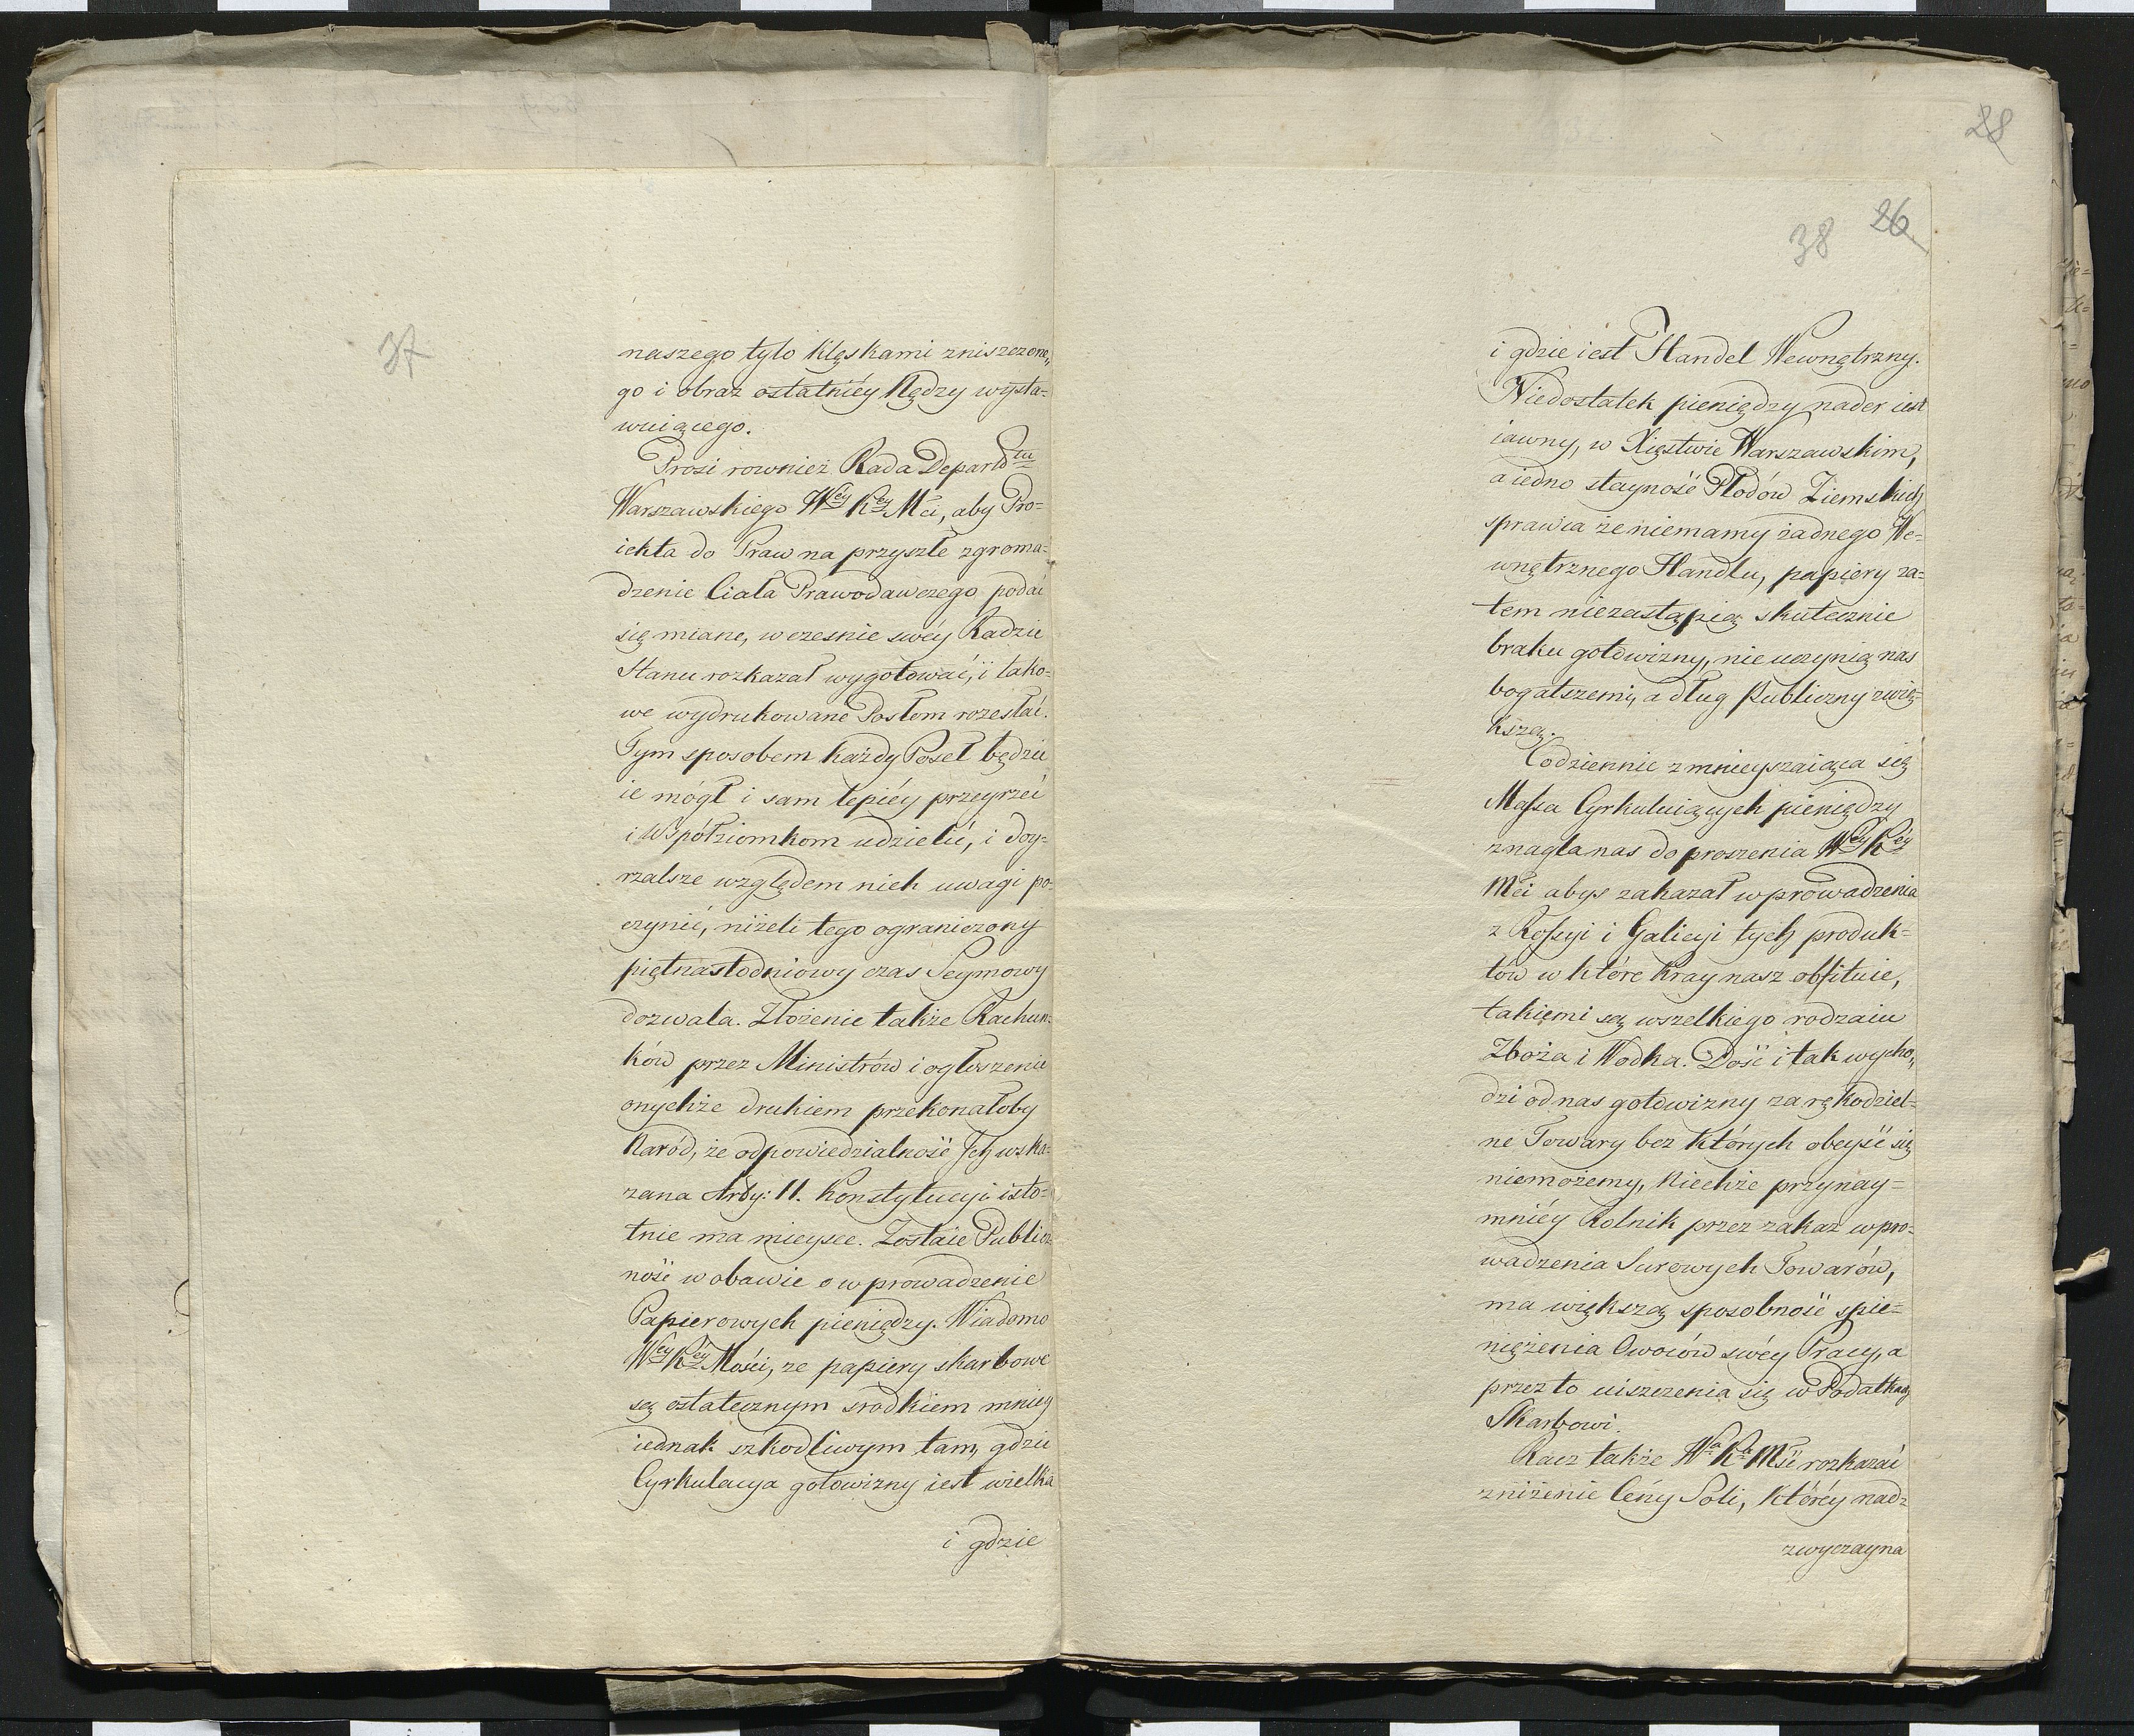 37
naszego tylo klęskami zniszczone„
go i obraz ostatniéy Nędzy wysta=
wuiącego.
Prosi rownież Rada Departtu
Warszawskiego Wéy Kéy Mci, aby Pro=
iekta do Praw na przyszłe zgroma=
dzenie Ciała Prawodawczego podać
się miane, wczesnie swéy Radzie
Stanu rozkazał wygotować, i tako=
we wydrukowane Posłom rozesłać.
Tym sposobem każdy Poseł będzie
ie mógł i sam lepiéy przeyrzeć
i Współziomkom udzielić, i doy=
rzalsze względem nich uwagi po=
czynić, niżeli tego ograniczony
piętnastodniowy czas Seymowy
dozwala. Złożenie także Rachun=
ków przez Ministrów i ogłoszenie
onychże drukiem przekonałoby
Naród, że odpowiedzialność Ich wska=
zana Ardy: 11. Konstytucyi isto=
tnie ma mieysce. Zostaie Publicz
ność w obawie o wprowadzenie
Papierowych pieniędzy. Wiadomo
Wéy Kéy Mości, ze papiery skarbowe
są ostatecznym srodkiem mniey
iednak szkodliwym tam, gdzie
Cyrkulacya gotowizny iest wielka
i gdzie
28
38 26
i gdzie iest Handel Wewnętrzny.
Niedostatek pieniędzy nader iest
iawny, w Xięstwie Warszawskim,
a iedno stayność Płodów Ziemskich
sprawia że niemamy żadnego We=
wnętrznego Handlu, papiery za=
tem niezastąpią skutecznie
braku gotowizny, nie uczynią nas
bogatszemi, a dług Publiczny zwię=
kszą.
Codziennie zmnieyszaiąca się
Massa Cyrkuluiących pieniędzy
znagla nas do proszenia Wéy Kéy
Mci abyś zakazał wprowadzenia
z Rossyi i Galicyi tych produk=
tów w które kray nasz obfituie,
takiemi są wszelkiego rodzaiu
Zboża i Wodka. Dość i tak wycho„
dzi od nas gotowizny za rękodziel=
ne Towary bez których obeyść się
niemożemy, Niechże przynay=
mniéy Rolnik przez zakaz wpro=
wadzenia Surowych Towarów,
ma większą sposobność spie=
niężenia Owoców swéy Pracy, a
przez to uiszczenia się w Podatkach
Skarbowi.
Racz także Wa Ka Mść rozkazać
zniżenie Cény Soli, któréy nad=
zwyczayna